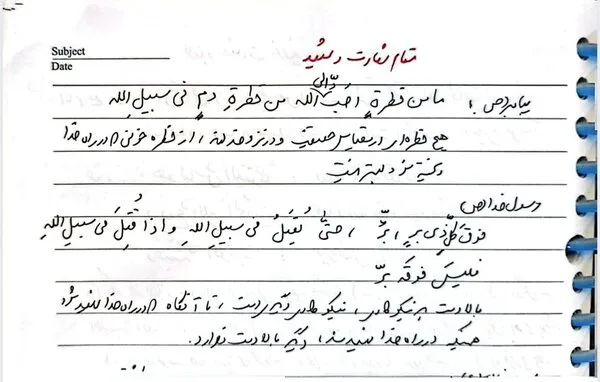 Subject
Date
مقام شهادت و شهید
پیامبر(ص):
ما من قطرةٍ احَبُّ الی الله من قطرةِ دمٍ فی سبیل اللهِ
هیچ قطره‌ای در مقیاس حقیقت و در نزد خدا، از قطره خونی که در راه خدا
ریخته شود بهتر نیست
رسول خدا(ص)
فوقَ کُلِّ ذِی بِرٍ، بَرٌّ، حتّیٰ یُقتَلُ فی سبیلِ اللهِ و اذا قُتِلَ فی سبیل اللهِ
فلیسَ فوقَهُ بَرٌّ
بالادست هر نیکوکاری، نیکوکار دیگری است، تا آنگاه که در راه خدا شهید شود
همینکه در راه خدا شهید شد، دیگر بالادست ندارد.